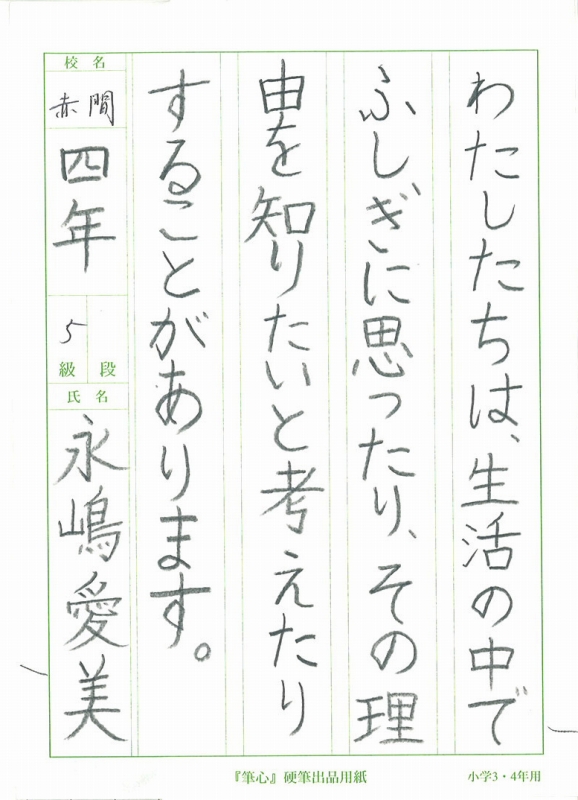 わたしたちは、生活の中で
ふしぎに思ったり、その理
由を知りたいと考えたり
することがあります。
校名
赤間
四年
5
級
段
氏名
永嶋愛美
『筆心』硬筆出品用紙
小学3・4年用